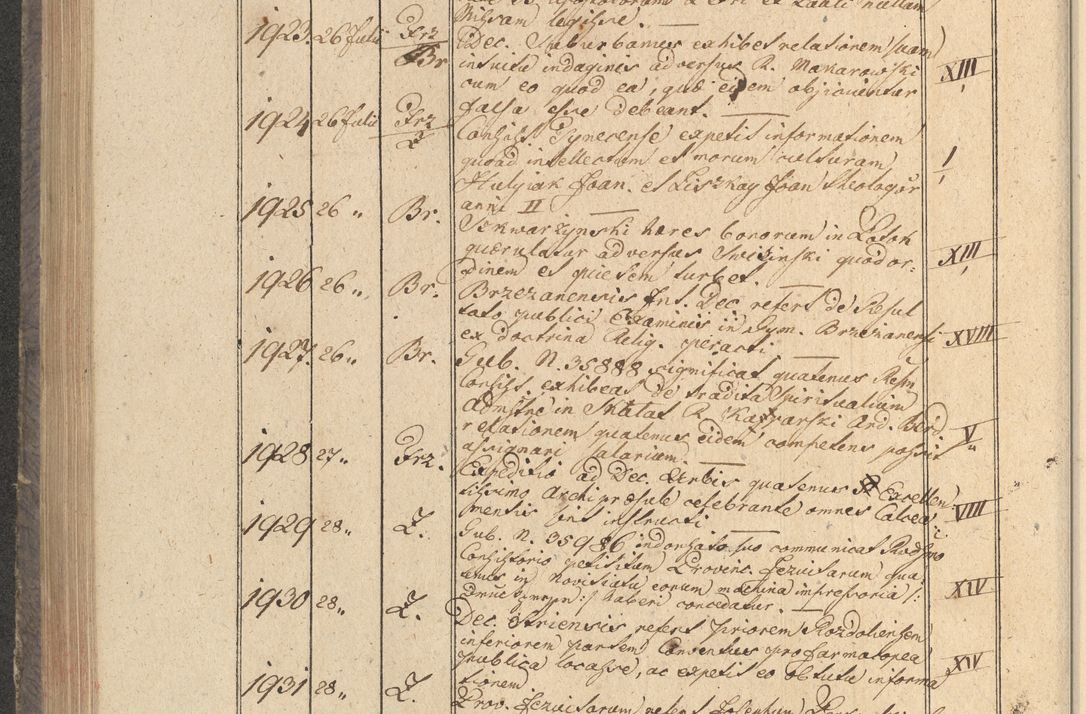 Missam legisse.
1923. 26 Julii Frz Br Dec. Suburbanus exhibet relationem suam
intuitu indaginis adversus R. Makarowski XIII
cum eo quod ea, quae eidem objiciuntur
falsa esse debeant.
1924 26 Julii Frz Ł Consist. Tynecense expetit informationem
quoad intellectum et morum culturam
Hulyiak Joan. et Liszkay Joan Theologor
anni II
1925 26 „ Br. Skwarżynski haeres bonorum in Potok
quaerulatur adversus Swiżinski quod or= XIII
dinem et quietem turbet.
1926 26 „ Br. Brzezanensis Int. Dec. refert de Resul
tato publici Examinis in Gym. Brzezanensi XVIII
ex doctrina Relig. peracti
1927. 26 „ Br. Gub. N. 35888 significat quatenus Resm
Consist. exhibeat de tradita Spiritualium
Admstne in R. Ord. Berd V
relationem quatenus eidem competens possit
assignari Salarium.
1928 27 „ Frz. Expeditio ad Dec. Urbis quatenus Excellen
tissimo Archipraesule celebrante omnes Calcea VIII
mentis sint instructi.
1929 28 „ Ł. Gub. N. 35986 indorsato suo communicat Rodsmo
Consistorio petitum Provinc. Jezuitarum qua
tenus in Novitiatu eorum machina impressoria /: XIV
:/ haberi concedatur.
1930 28 „ Ł. Dec. Striensis refert priorem Rozdoliensem
inferiorem partem Conventus pro farmacopea
publica locasse, ac expetit eo obtutu informa XIV
tionem.
1931 28 „ Ł. Prov. Jezuitarum refert Josephum